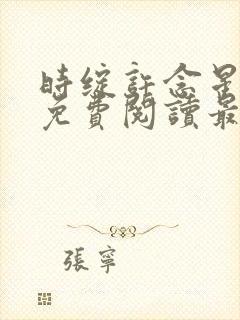 時綻許念星
免費閱讀最
張寧